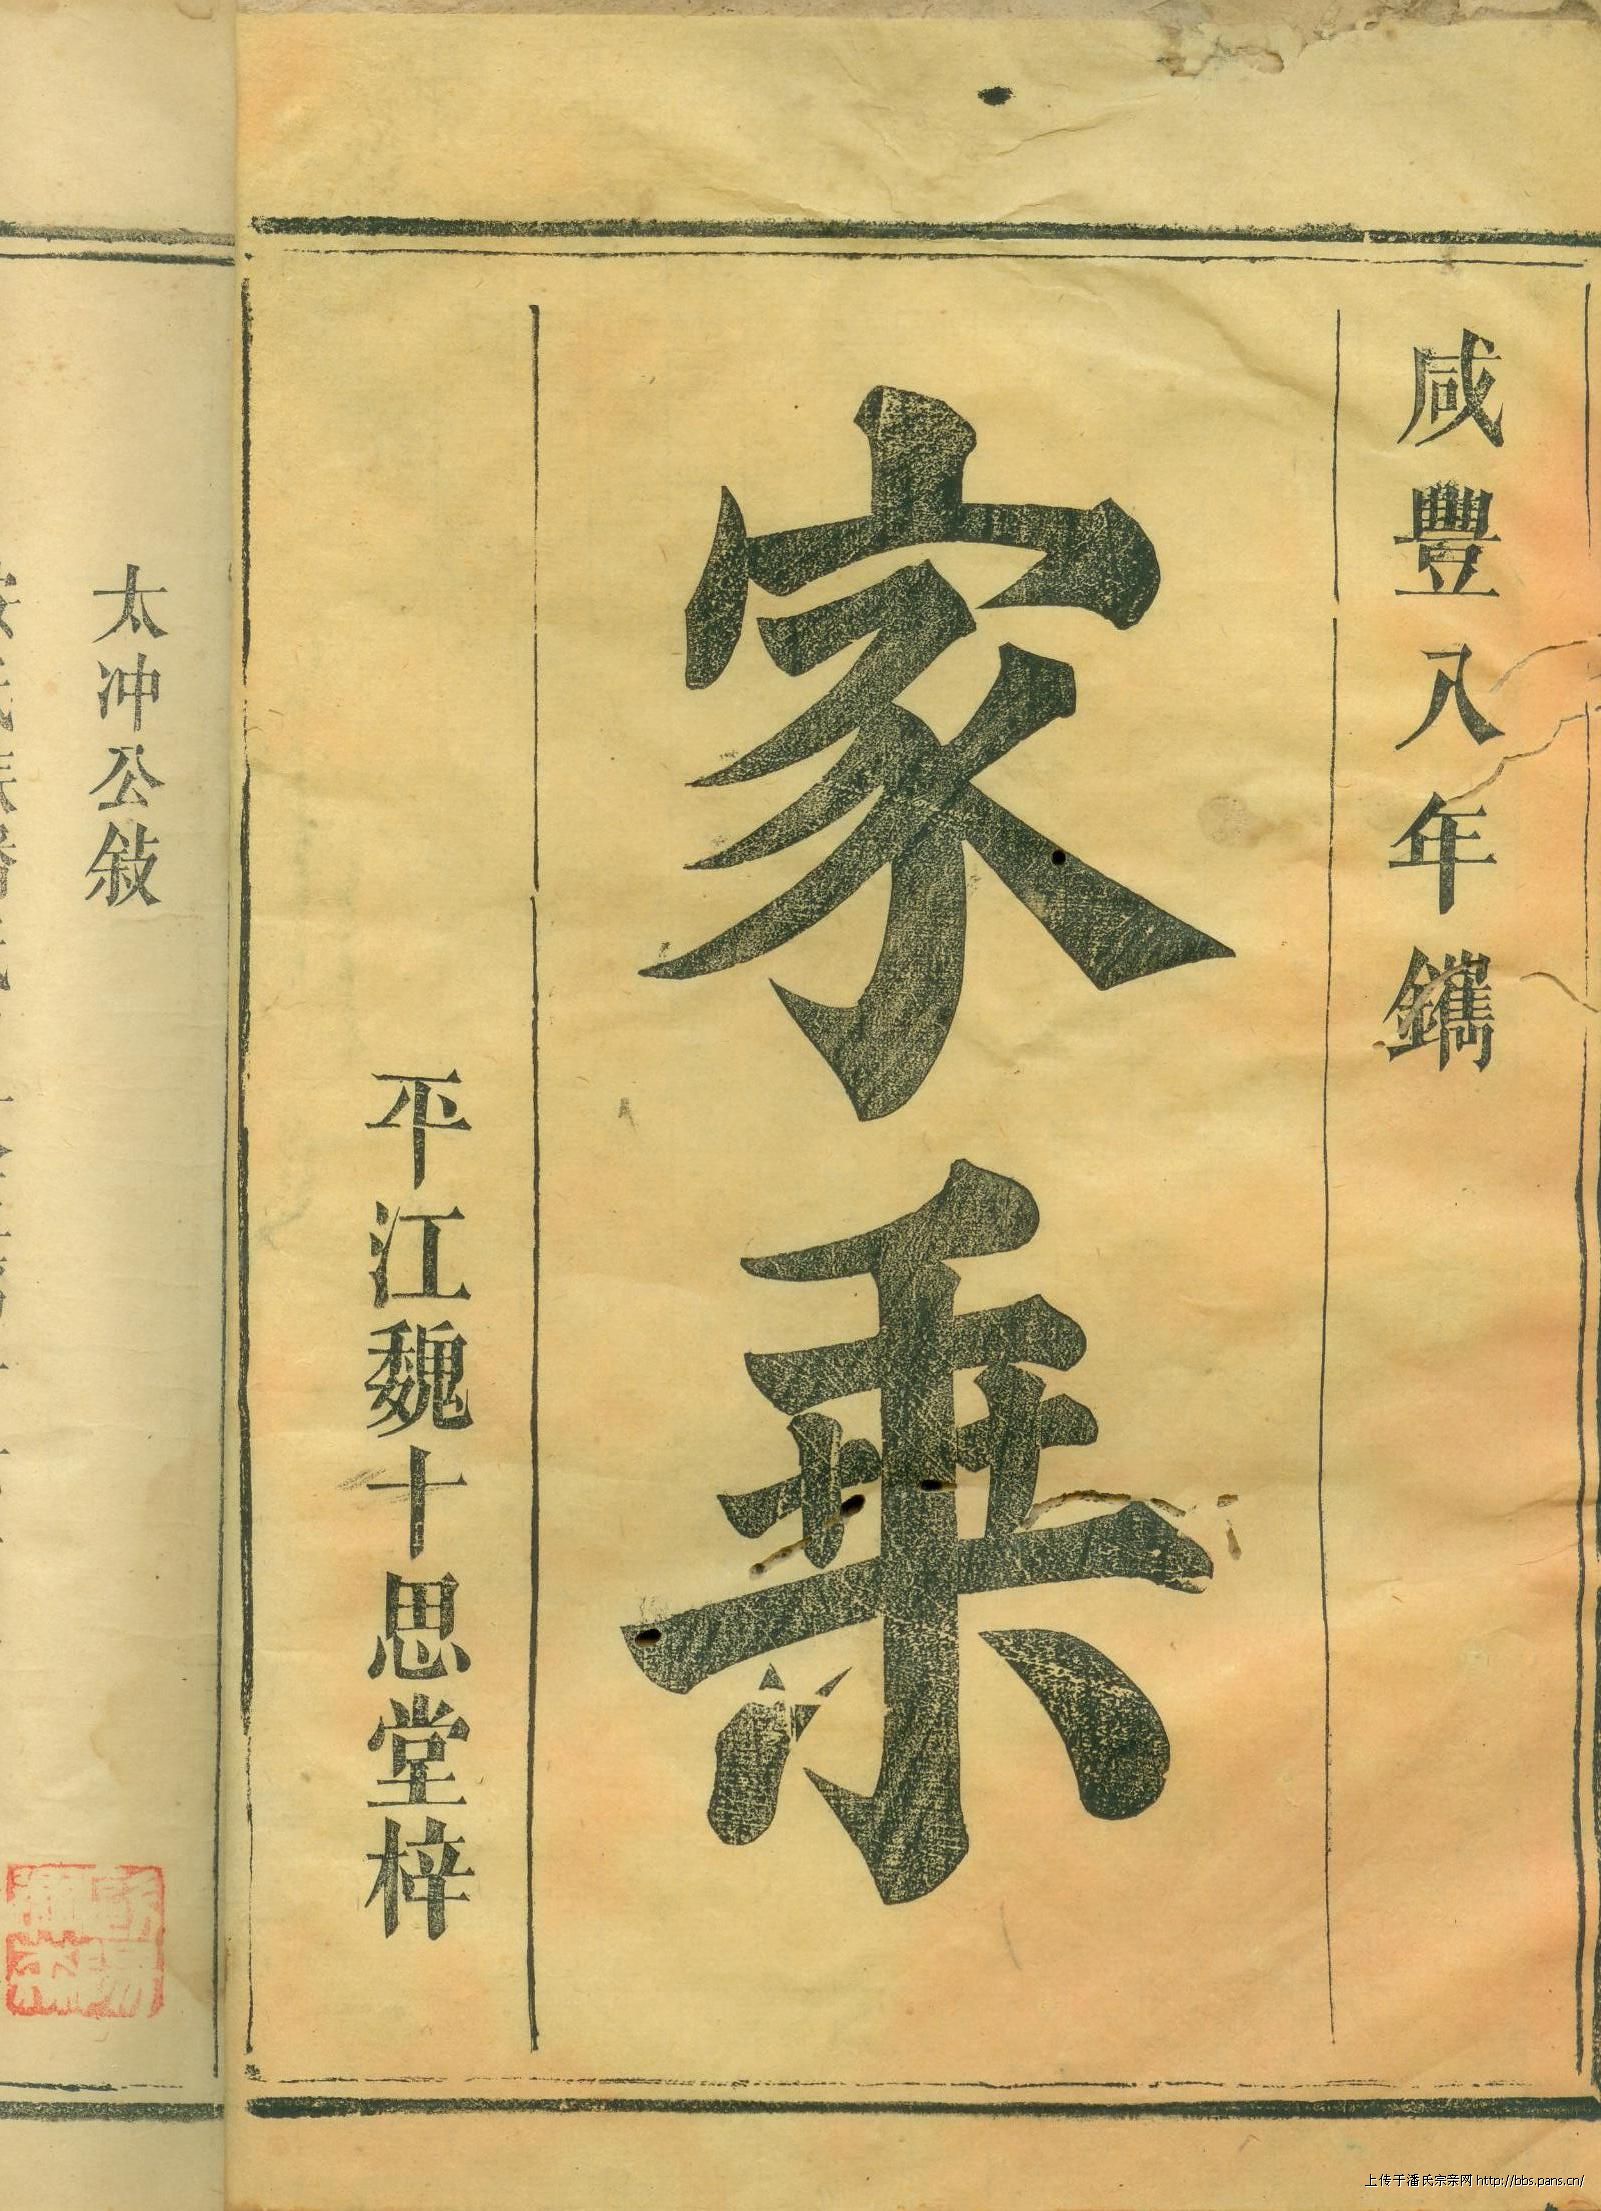 咸豐八年鐫
家乘
平江魏十思堂梓
太冲公敍
上传于潘氏宗亲网 http://bbs.pans.cn/